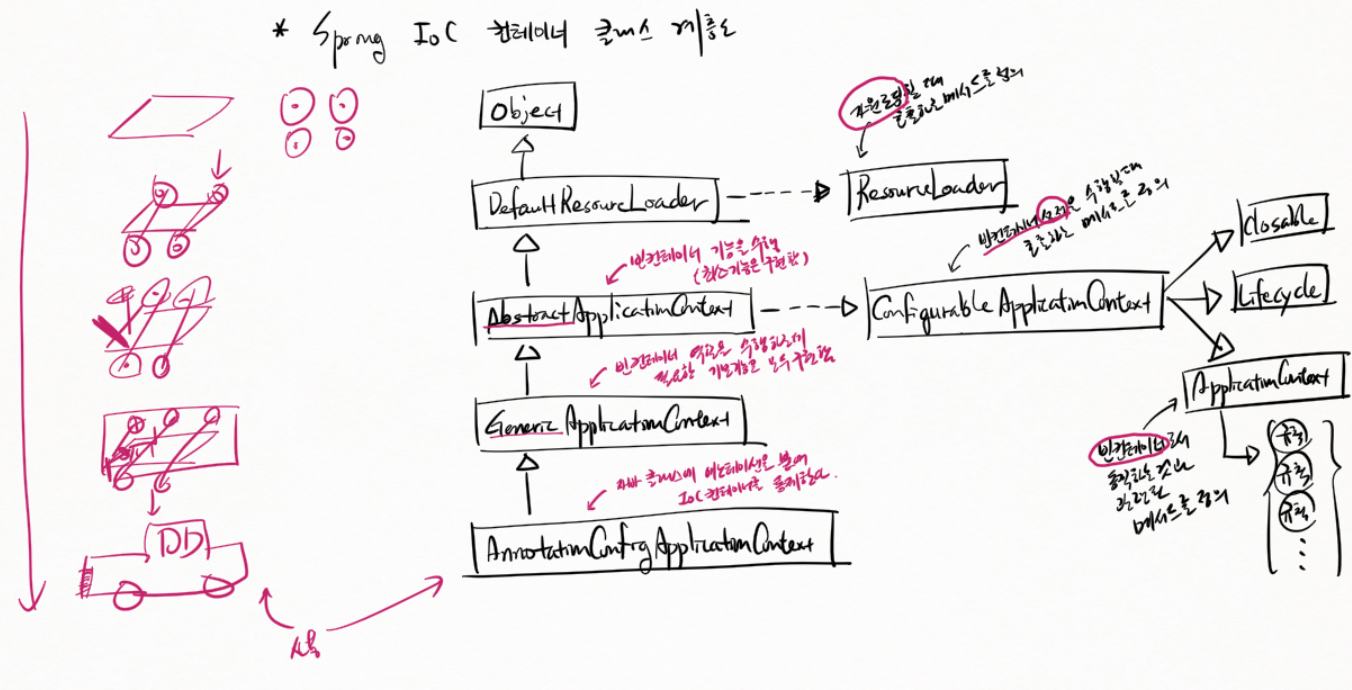 * Spring IoC 컨테이너 클래스 계층도
Object
자원로딩할 때
호출하는 메서드 정의
DefaultResourceLoader
ResourceLoader
빈컨테이너 설정을 수행할 때
호출하는 메서드를 정의
Closable
빈컨테이너 기능을 수행
(최소기능은 구현함)
AbstractApplicationContext
ConfigurableApplicationContext
Lifecycle
빈컨테이너 역할을 수행하는데
필요한 기본기능은 모두 구현함
ApplicationContext
GenericApplicationContext
빈컨테이너로서
동작하는 것과
관련된
메서드를 정의
규칙
규칙
규칙
자바 클래스에 애노테이션을 붙여
IoC 컨테이너를 통제한다.
AnnotationConfigApplicationContext
사용